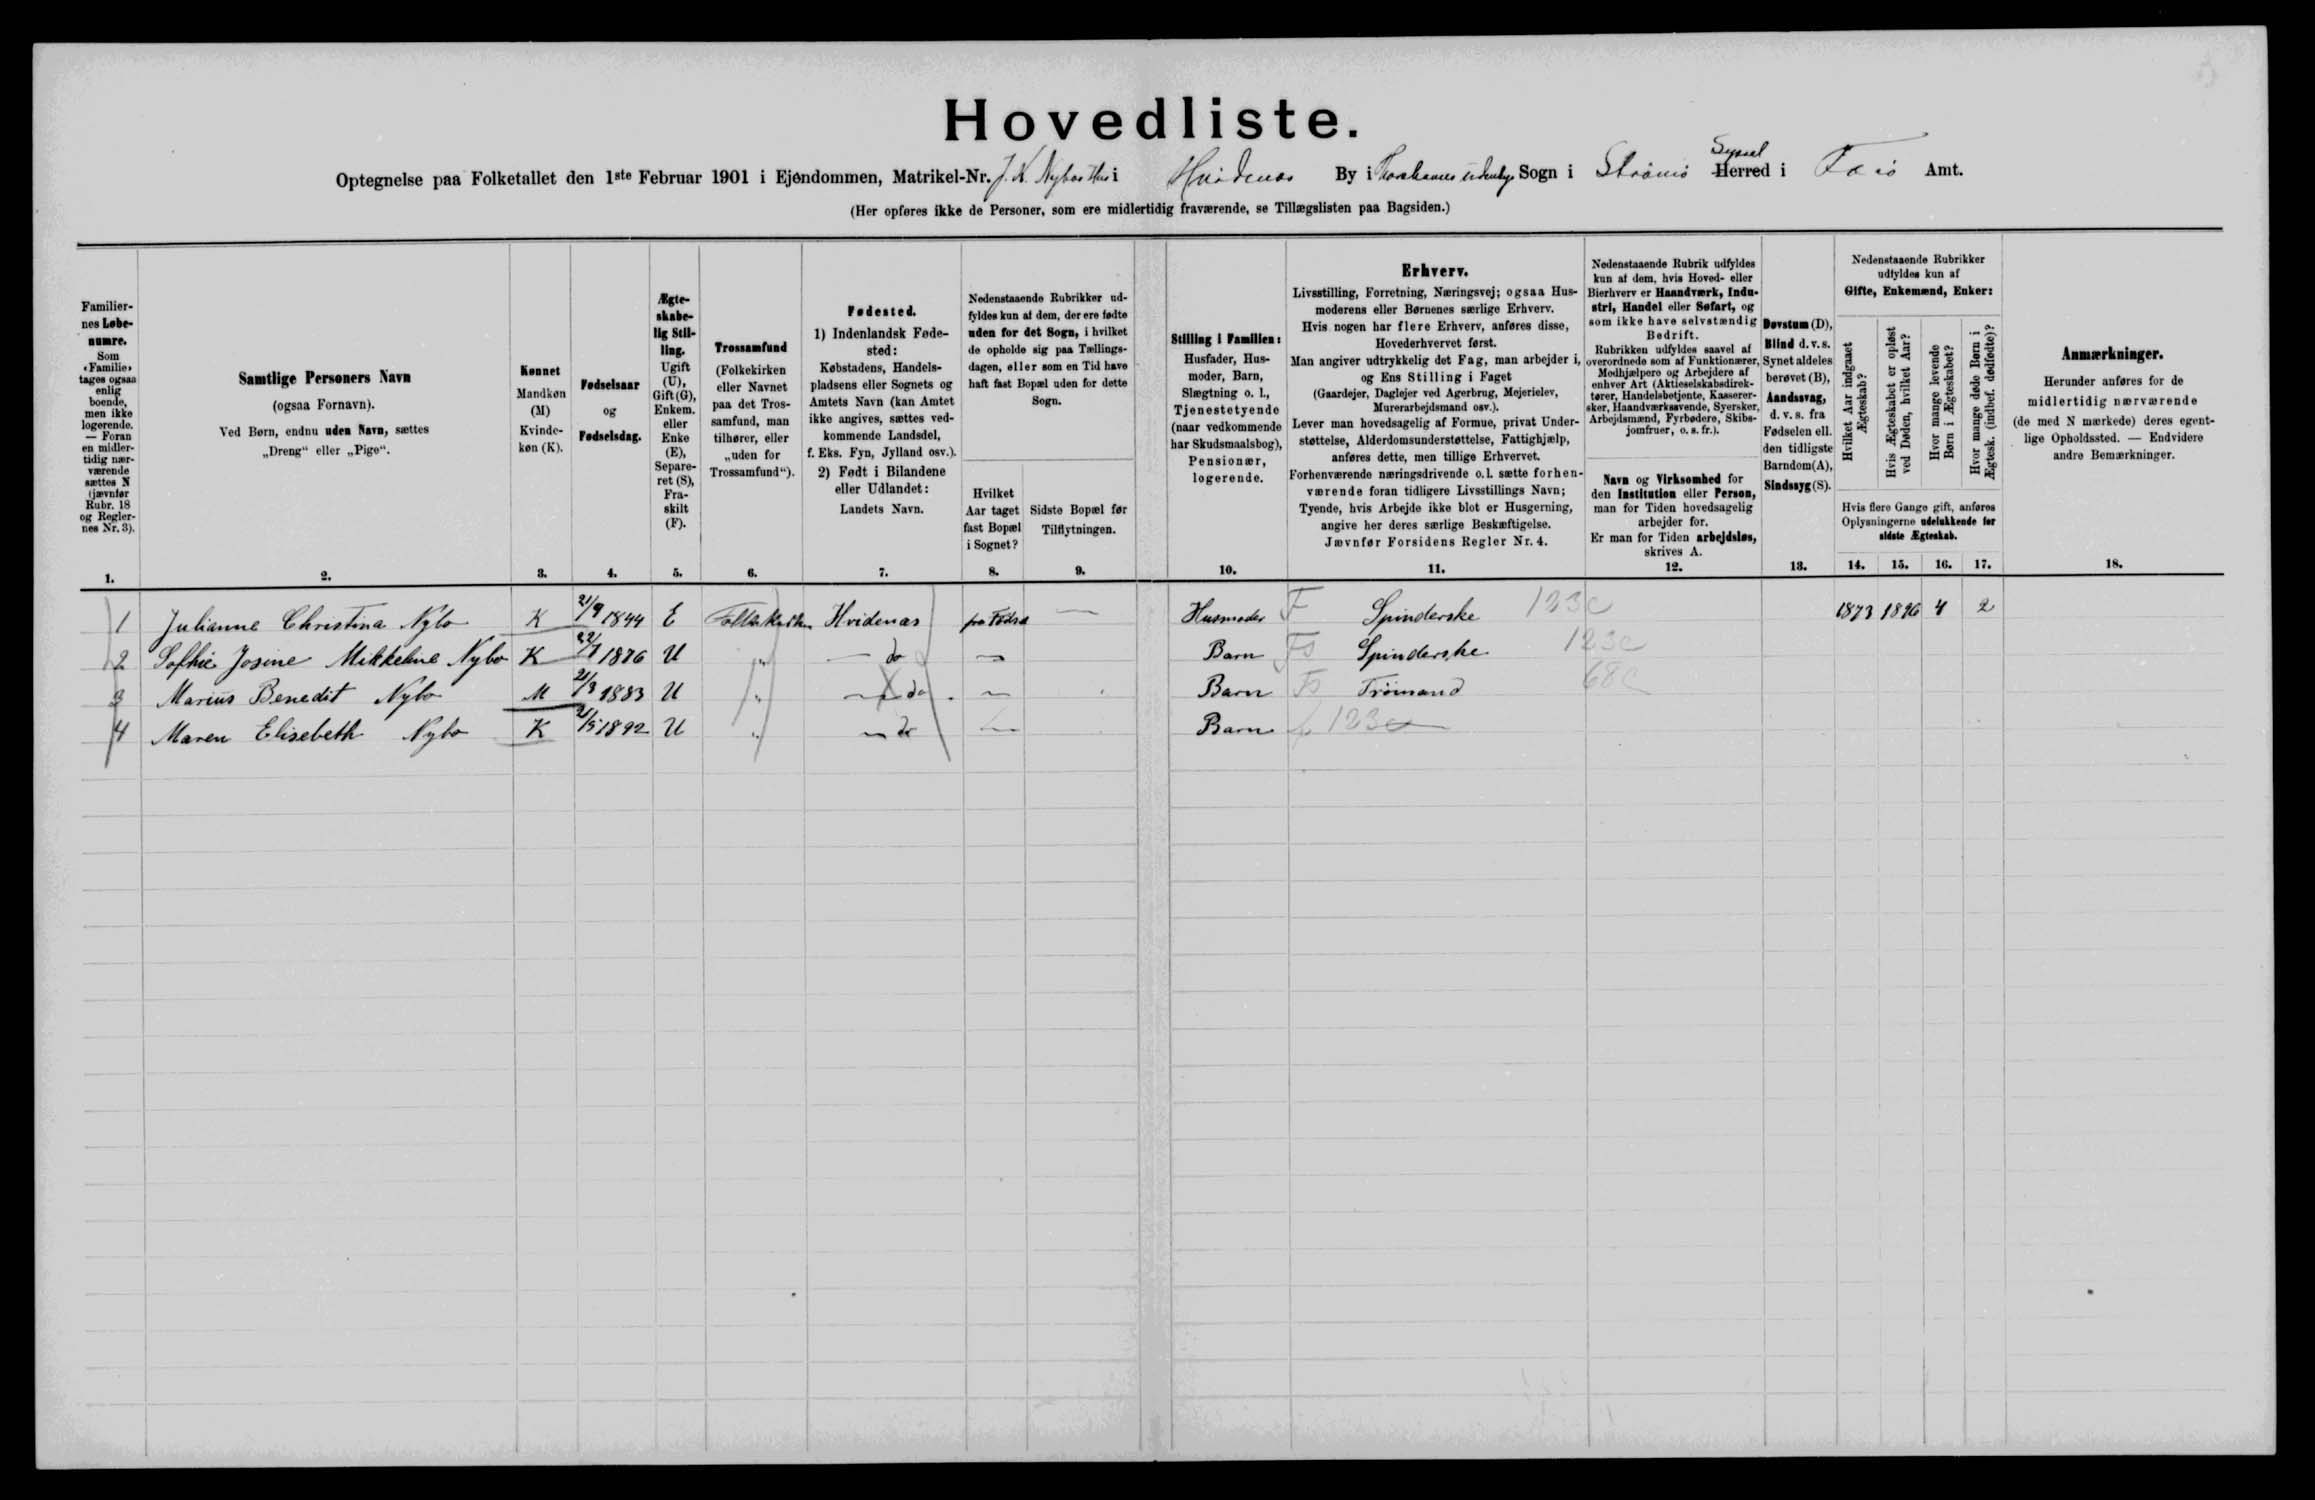 Hovedliste.
Optegnelse paa Folketallet den 1ste Februar 1901 i Ejendommen, Matrikel-Nr. J. K. Nybos Hus i Hvidenæs By i Thorshavns Udenby Sogn i Strømø Syssel Herred i Færø Amt.
(Her opføres ikke de Personer, som ere midlertidig fraværende, se Tillægslisten paa Bagsiden.)
Familiernes Løbenumre. Som «Familie» tages ogsaa enlig boende, men ikke logerende. — Foran en midlertidig nærværende sættes N (jævnfør Rubr. 18 og Reglernes Nr. 3).
Samtlige Personers Navn (ogsaa Fornavn). Ved Børn, endnu uden Navn, sættes „Dreng“ eller „Pige“.
Kønnet Mandkøn (M) Kvindekøn (K).
Fødselsaar og Fødselsdag.
Ægteskabelig Stilling. Ugift (U), Gift (G), Enkem. eller Enke (E), Separeret (S), Fraskilt (F).
Trossamfund (Folkekirken eller Navnet paa det Trossamfund, man tilhører, eller „uden for Trossamfund“).
Fødested. 1) Indenlandsk Fødested: Købstadens, Handelspladsens eller Sognets og Amtets Navn (kan Amtet ikke angives, sættes vedkommende Landsdel, f. Eks. Fyn, Jylland osv.). 2) Født i Bilandene eller Udlandet: Landets Navn.
Nedenstaaende Rubrikker udfyldes kun af dem, der ere fødte uden for det Sogn, i hvilket de opholde sig paa Tællingsdagen, eller som en Tid have haft fast Bopæl uden for dette Sogn.
Hvilket Aar taget fast Bopæl i Sognet?
Sidste Bopæl før Tilflytningen.
Stilling i Familien: Husfader, Husmoder, Barn, Slægtning o. l., Tjenestetyende (naar vedkommende har Skudsmaalsbog), Pensionær, logerende.
Erhverv.
Livsstilling, Forretning, Næringsvej; ogsaa Husmoderens eller Børnenes særlige Erhverv.
Hvis nogen har flere Erhverv, anføres disse, Hovederhvervet først.
Man angiver udtrykkelig det Fag, man arbejder i, og Ens Stilling i Faget
(Gaardejer, Daglejer ved Agerbrug, Mejerielev, Murerarbejdsmand osv.).
Lever man hovedsagelig af Formue, privat Understøttelse, Alderdomsunderstøttelse, Fattighjælp, anføres dette, men tillige Erhvervet.
Forhenværende næringsdrivende o. l. sætte forhenværende foran tidligere Livsstillings Navn;
Tyende, hvis Arbejde ikke blot er Husgerning, angive her deres særlige Beskæftigelse.
Jævnfør Forsidens Regler Nr. 4.
Nedenstaaende Rubrik udfyldes kun af dem, hvis Hoved- eller Bierhverv er Haandværk, Industri, Handel eller Søfart, og som ikke have selvstændig Bedrift.
Rubrikken udfyldes saavel af overordnede som af Funktionærer, Medhjælpere og Arbejdere af enhver Art (Aktieselskabsdirektører, Handelsbetjente, Kasserersker, Haandværkssvende, Syersker, Arbejdsmænd, Fyrbødere, Skibsjomfruer, o. s. fr.).
Navn og Virksomhed for den Institution eller Person, man for Tiden hovedsagelig arbejder for.
Er man for Tiden arbejdsløs, skrives A.
Døvstum (D), Blind d. v. s. Synet aldeles berøvet (B), Aandssvag, d. v. s. fra Fødselen ell. den tidligste Barndom (A), Sindssyg (S).
Nedenstaaende Rubrikker udfyldes kun af Gifte, Enkemænd, Enker:
Hvilket Aar indgaaet Ægteskab?
Hvis Ægteskabet er opløst ved Døden, hvilket Aar?
Hvor mange levende Børn i Ægteskabet?
Hvor mange døde Børn i Ægtesk. (indbef. dødfødte)?
Hvis flere Gange gift, anføres Oplysningerne udelukkende for sidste Ægteskab.
Anmærkninger. Herunder anføres for de midlertidig nærværende (de med N mærkede) deres egentlige Opholdssted. — Endvidere andre Bemærkninger.
1. 2. 3. 4. 5. 6. 7. 8. 9. 10. 11. 12. 13. 14. 15. 16. 17. 18.
1 Julianne Christina Nybo K 21/9 1844 E Folkekirken Hvidenæs fra Føds. — Husmoder F Spinderske 123c 1873 1896 4 2
2 Sofhie Josine Mikkeline Nybo K 22/7 1876 U " — do — Barn Fs Spinderske 123c
3 Marius Benedit Nybo M 21/3 1883 U " — do — Barn Fs Trømand 68c
4 Maren Elisebeth Nybo K 21/5 1892 U " — do — Barn f 123c